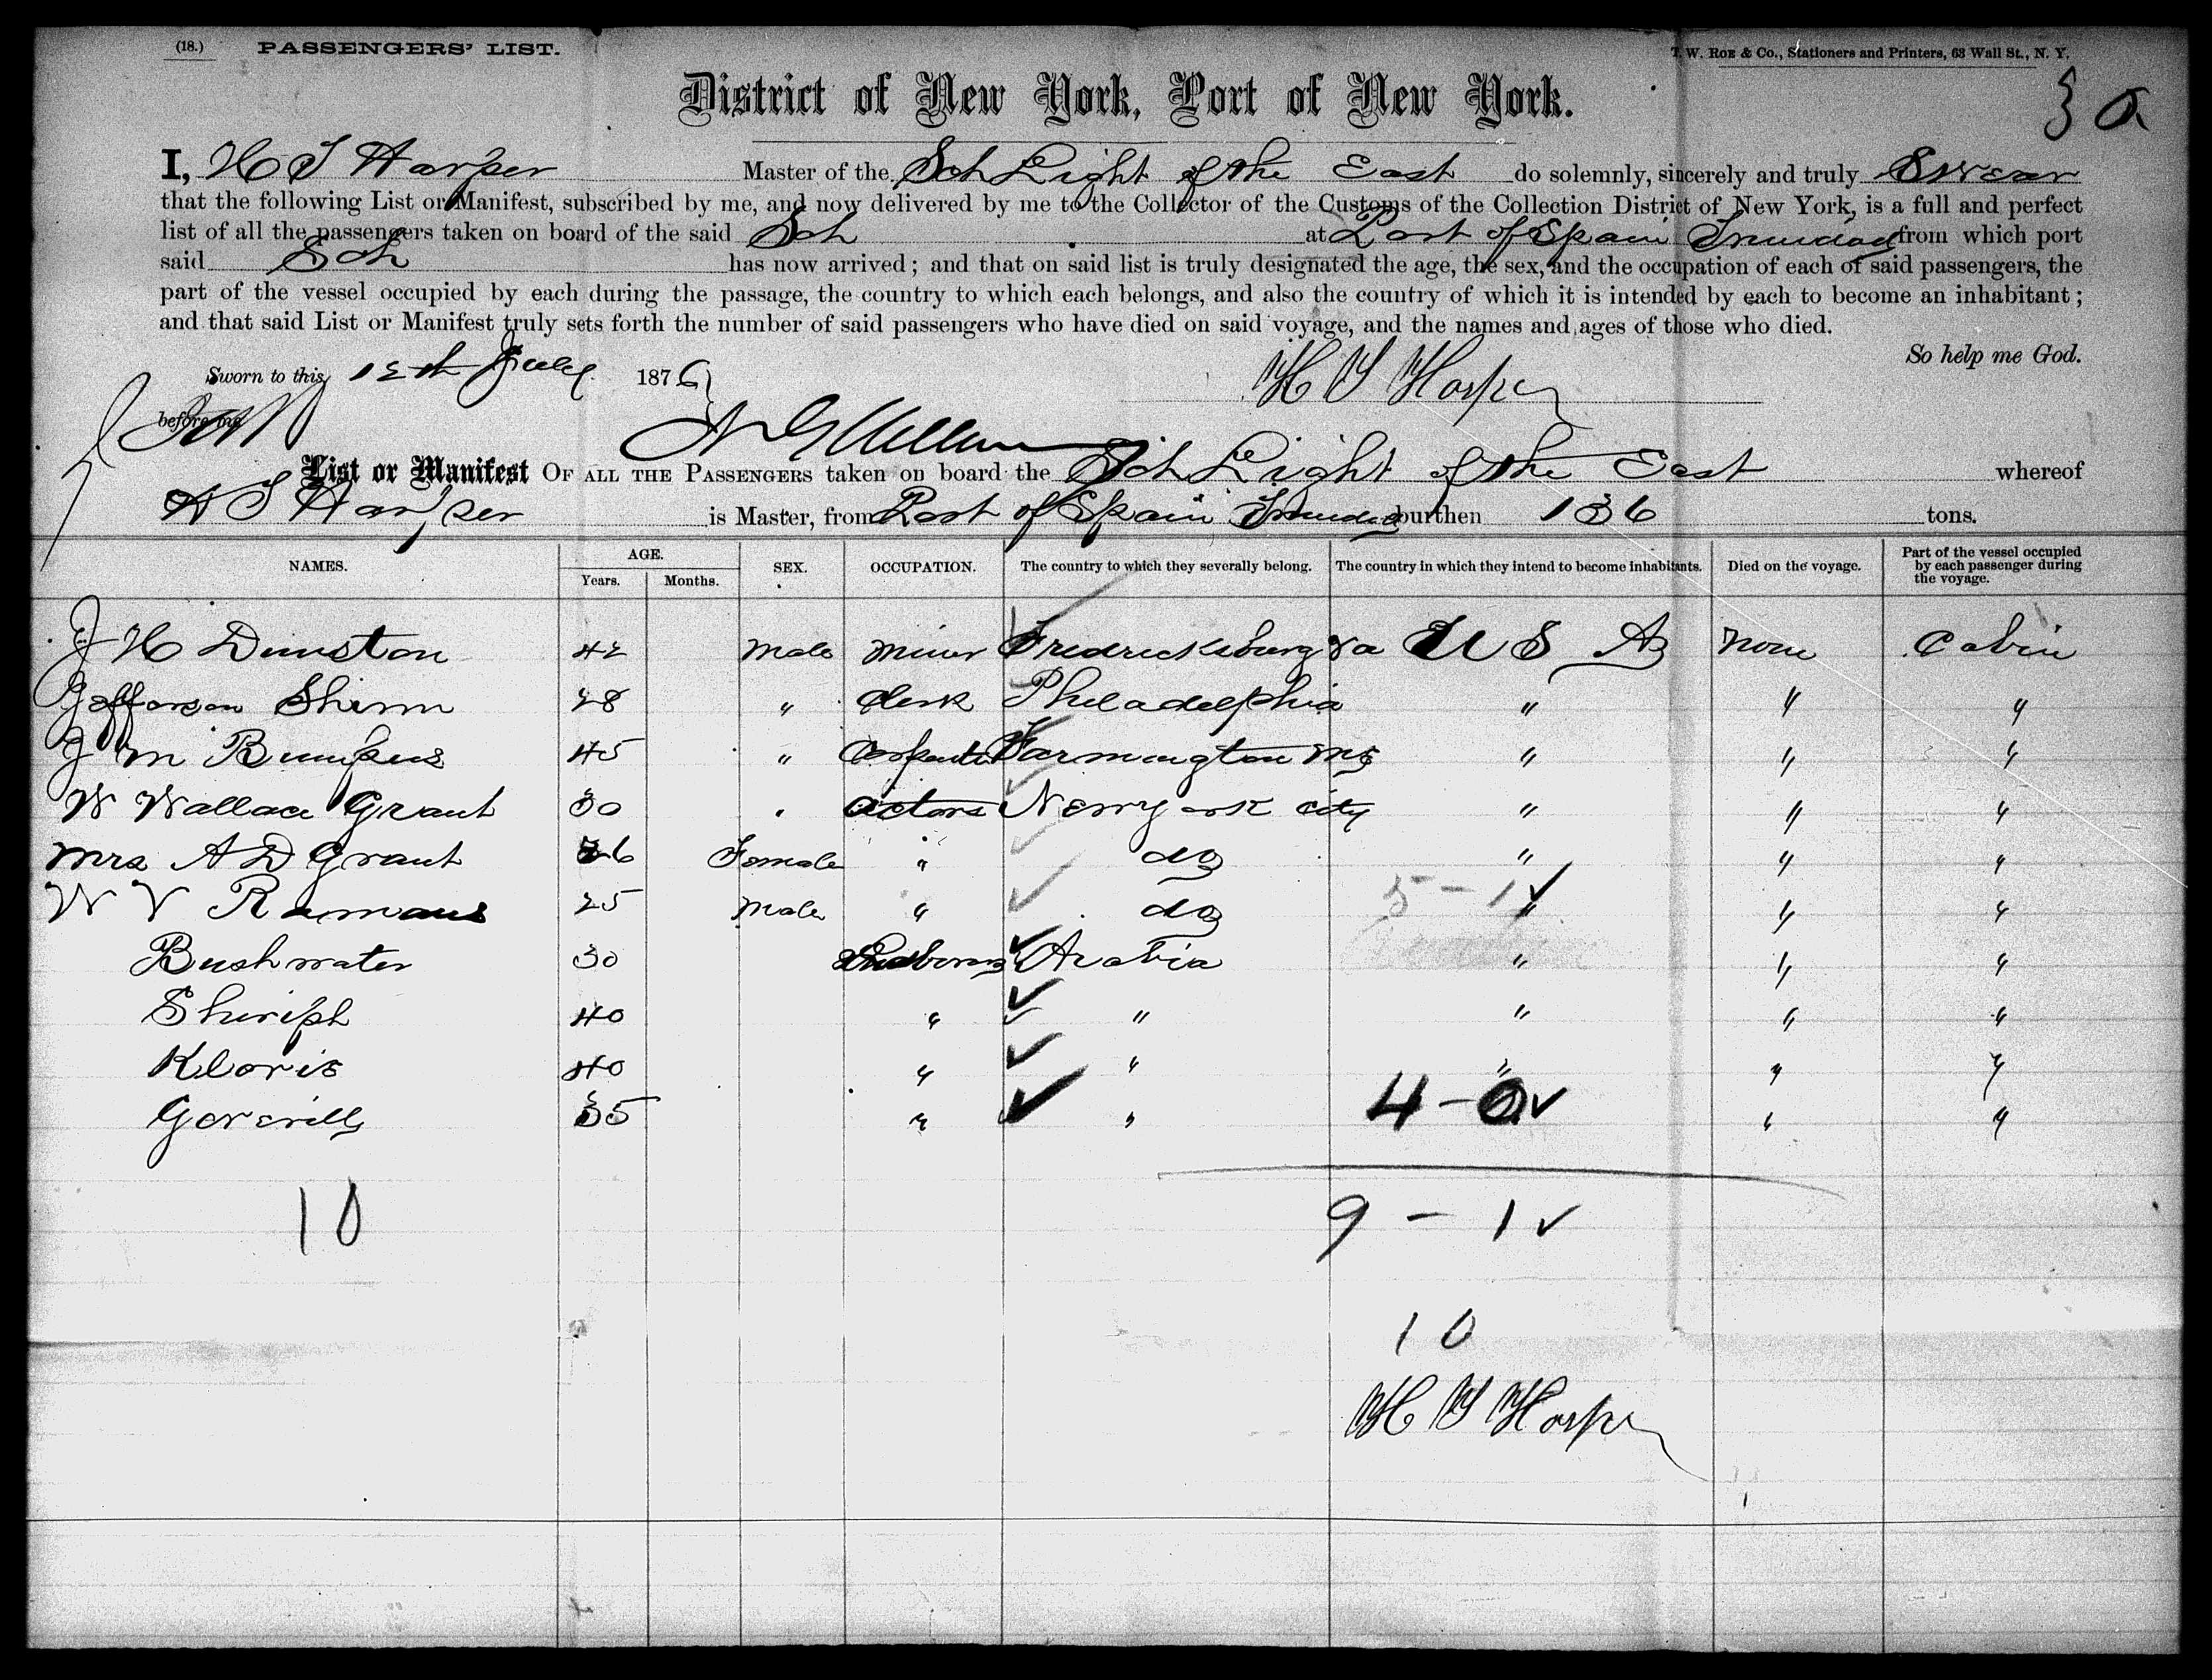 (18.) PASSENGERS' LIST. T. W. ROE & Co., Stationers and Printers, 63 Wall St., N. Y.
District of New York, Port of New York.
I, H S Harper Master of the Sch Light of the East do solemnly, sincerely and truly Swear
that the following List or Manifest, subscribed by me, and now delivered by me to the Collector of the Customs of the Collection District of New York, is a full and perfect
list of all the passengers taken on board of the said Sch at Port of Spain Trinidad from which port
said Sch has now arrived; and that on said list is truly designated the age, the sex, and the occupation of each of said passengers, the
part of the vessel occupied by each during the passage, the country to which each belongs, and also the country of which it is intended by each to become an inhabitant;
and that said List or Manifest truly sets forth the number of said passengers who have died on said voyage, and the names and ages of those who died.
So help me God.
Sworn to this 12th July 1876 H S Harper
before me
List or Manifest OF ALL THE PASSENGERS taken on board the Sch Light of the East whereof
H S Harper is Master, from Port of Spain Trinidad burthen 136 tons.
NAMES. AGE. Years. Months. SEX. OCCUPATION. The country to which they severally belong. The country in which they intend to become inhabitants. Died on the voyage. Part of the vessel occupied by each passenger during the voyage.
J H Dunston 42 Male Miner Fredricksburg Va U S A None Cabin
Jefferson Shinn 28 " Clerk Philadelphia " " "
J M Bumpus 45 " Carpenter Farmington Me " " "
W Wallace Grant 30 " actors New york city " " "
Mrs A D Grant 26 Female " do " " "
W V Ramans 25 Male " do " " "
5 - 1 ✓
Bushwater 30 Arabia " " "
Shiriph 40 " " " " "
Kloris 40 " " " " "
35 " " " "
4 - 0 ✓
10 9 - 1 ✓
10
H S Harper